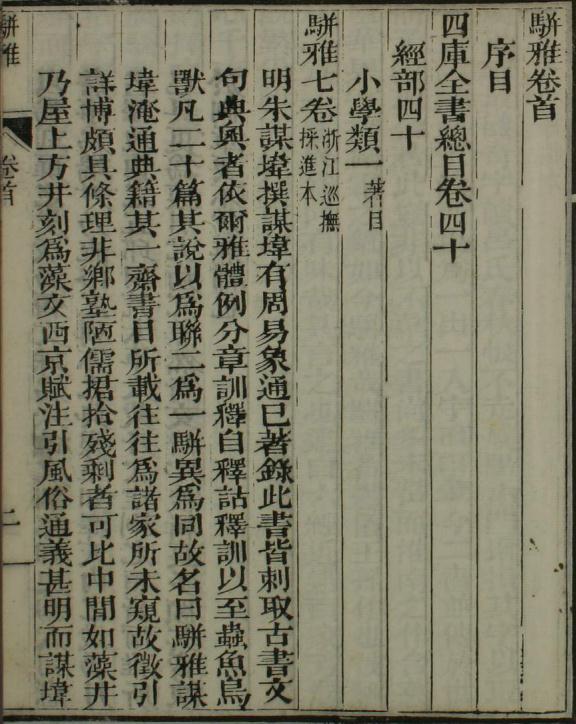 駢雅卷首
序目
四庫全書總目卷四十
經部四十
小學類一 著目
駢雅七卷 浙江巡撫採進本
明朱謀㙔撰謀㙔有周易象通已著錄此書皆刺取古書文
句典奧者依爾雅體例分章訓釋自釋詁釋訓以至蟲魚鳥
獸凡二十篇其說以爲聯二爲一駢異爲同故名曰駢雅謀
㙔淹通典籍其一齋書目所載往往爲諸家所未窺故徵引
詳博頗具條理非鄉塾陋儒捃拾殘剩者可比中閒如藻井
乃屋上方井刻爲藻文西京賦注引風俗通義甚明而謀㙔
駢雅
卷首
二